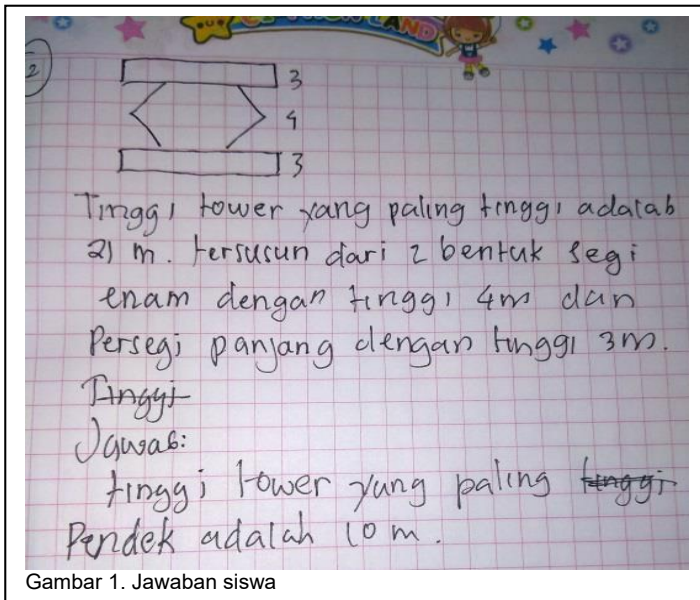 LAND
2
3
4
3
Tinggi tower yang paling tinggi adalah
21 m. tersusun dari 2 bentuk segi
enam dengan tinggi 4m dan
Persegi panjang dengan tinggi 3m.
Tinggi
Jawab:
tinggi tower yang paling tinggi
Pendek adalah 10 m.
Gambar 1. Jawaban siswa